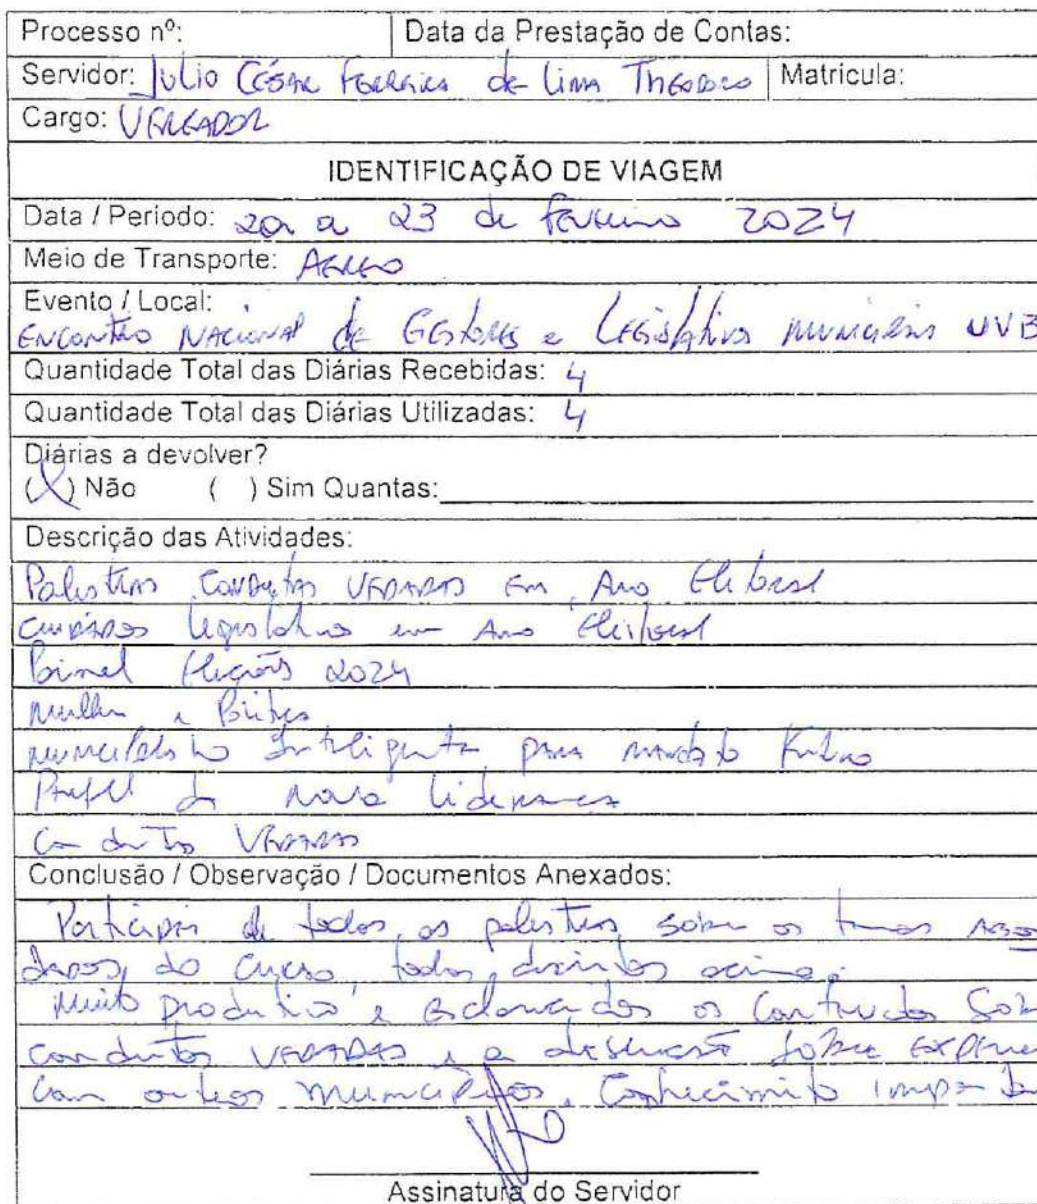 Processo nº: Data da Prestação de Contas:
Servidor: Julio César Ferreira de Lima Theodoro Matricula:
Cargo: VEREADOR
IDENTIFICAÇÃO DE VIAGEM
Data / Periodo: 20 a 23 de fevereiro 2024
Meio de Transporte: Aereo
Evento / Local:
ENCONTRO NACIONAL de Gestores e Legislativos municipais UVB
Quantidade Total das Diárias Recebidas: 4
Quantidade Total das Diárias Utilizadas: 4
Diárias a devolver?
(X) Não ( ) Sim Quantas:
Descrição das Atividades:
Palestras Condutas VEDADAS Em Ano Eleitoral
cuidados legislativo em Ano Eleitoral
Painel Eleições 2024
mulher e Politica
Inteligente para mandato
Perfil da Nova liderança
Condutas VEDADAS
Conclusão / Observação / Documentos Anexados:
Participei de todos as palestras sobre os temas
do curso, todos acima.
Muito produtivo e os Conteudos Sob
condutas VEDADAS e a sobre Exper
com outros municípios, Conhecimento
Assinatura do Servidor